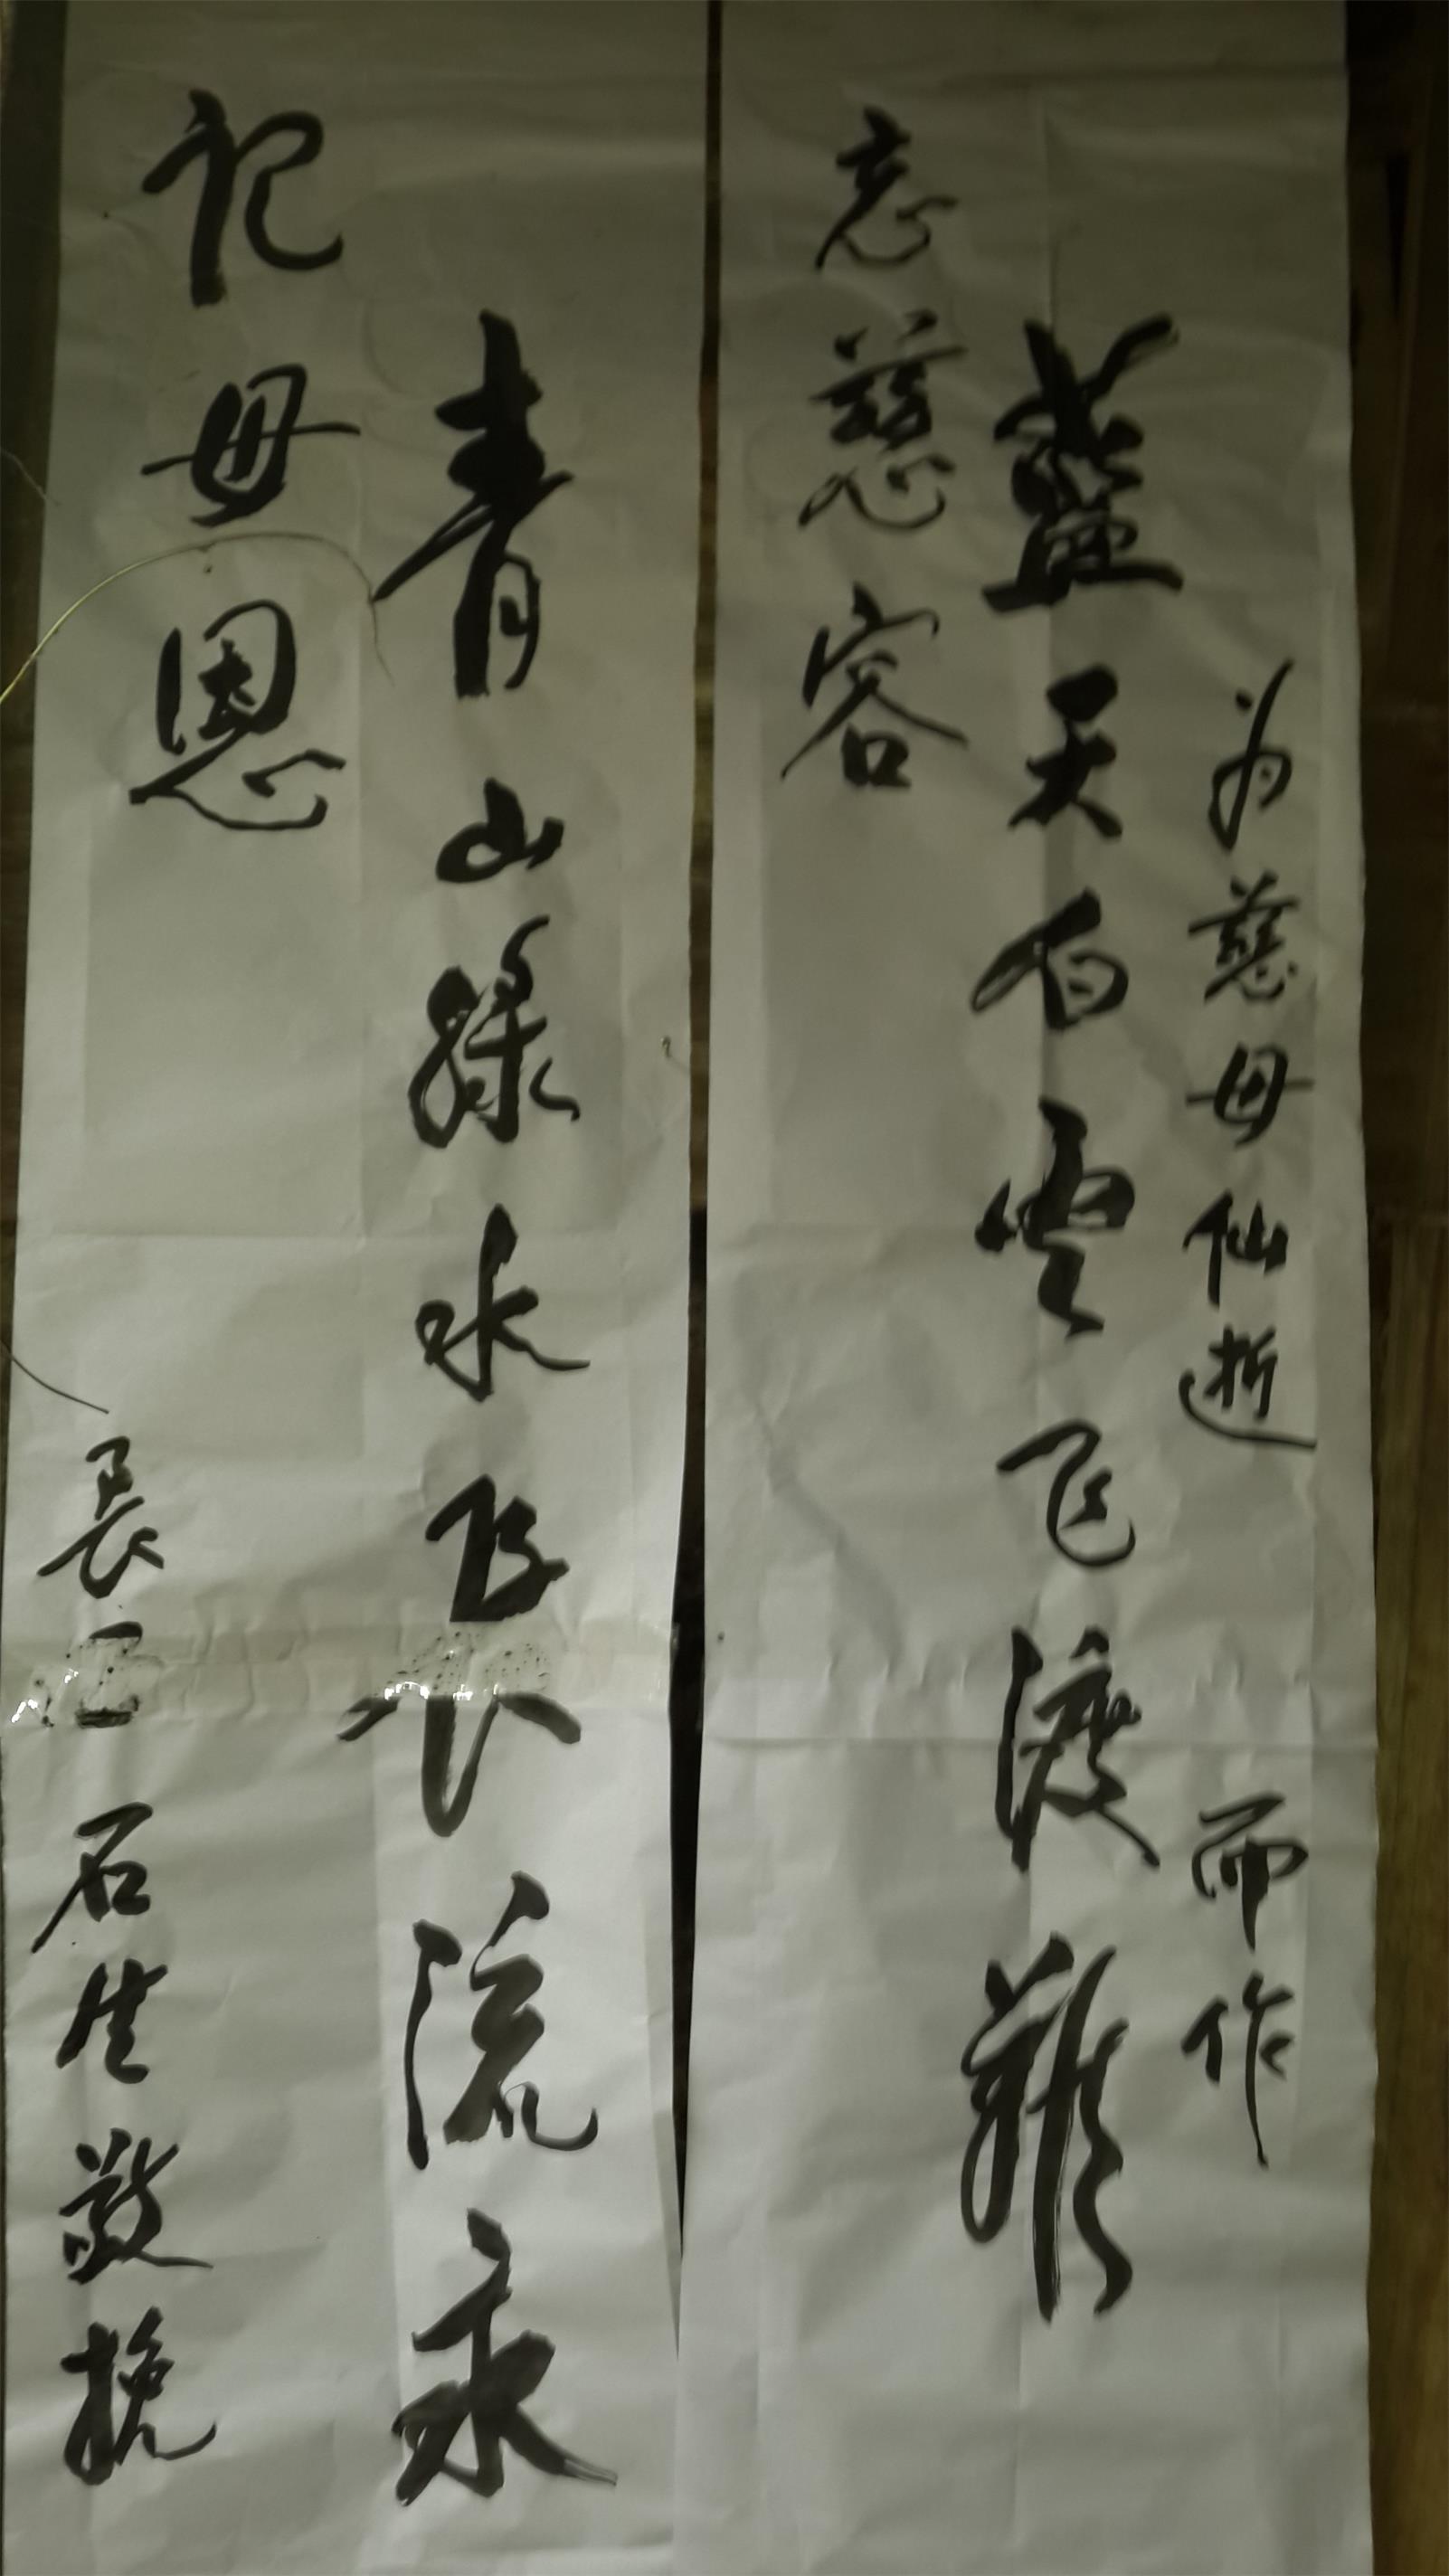 为慈母仙逝 而作
蓝天白雲飞渡難
忘慈容
青山綠水長流永
记母恩
長 石生敬挽